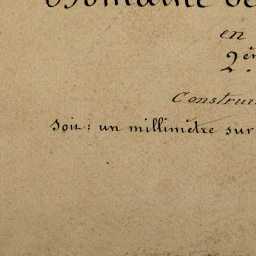 Domaine de
en
2èm
Construi
Soit: un millimètre sur